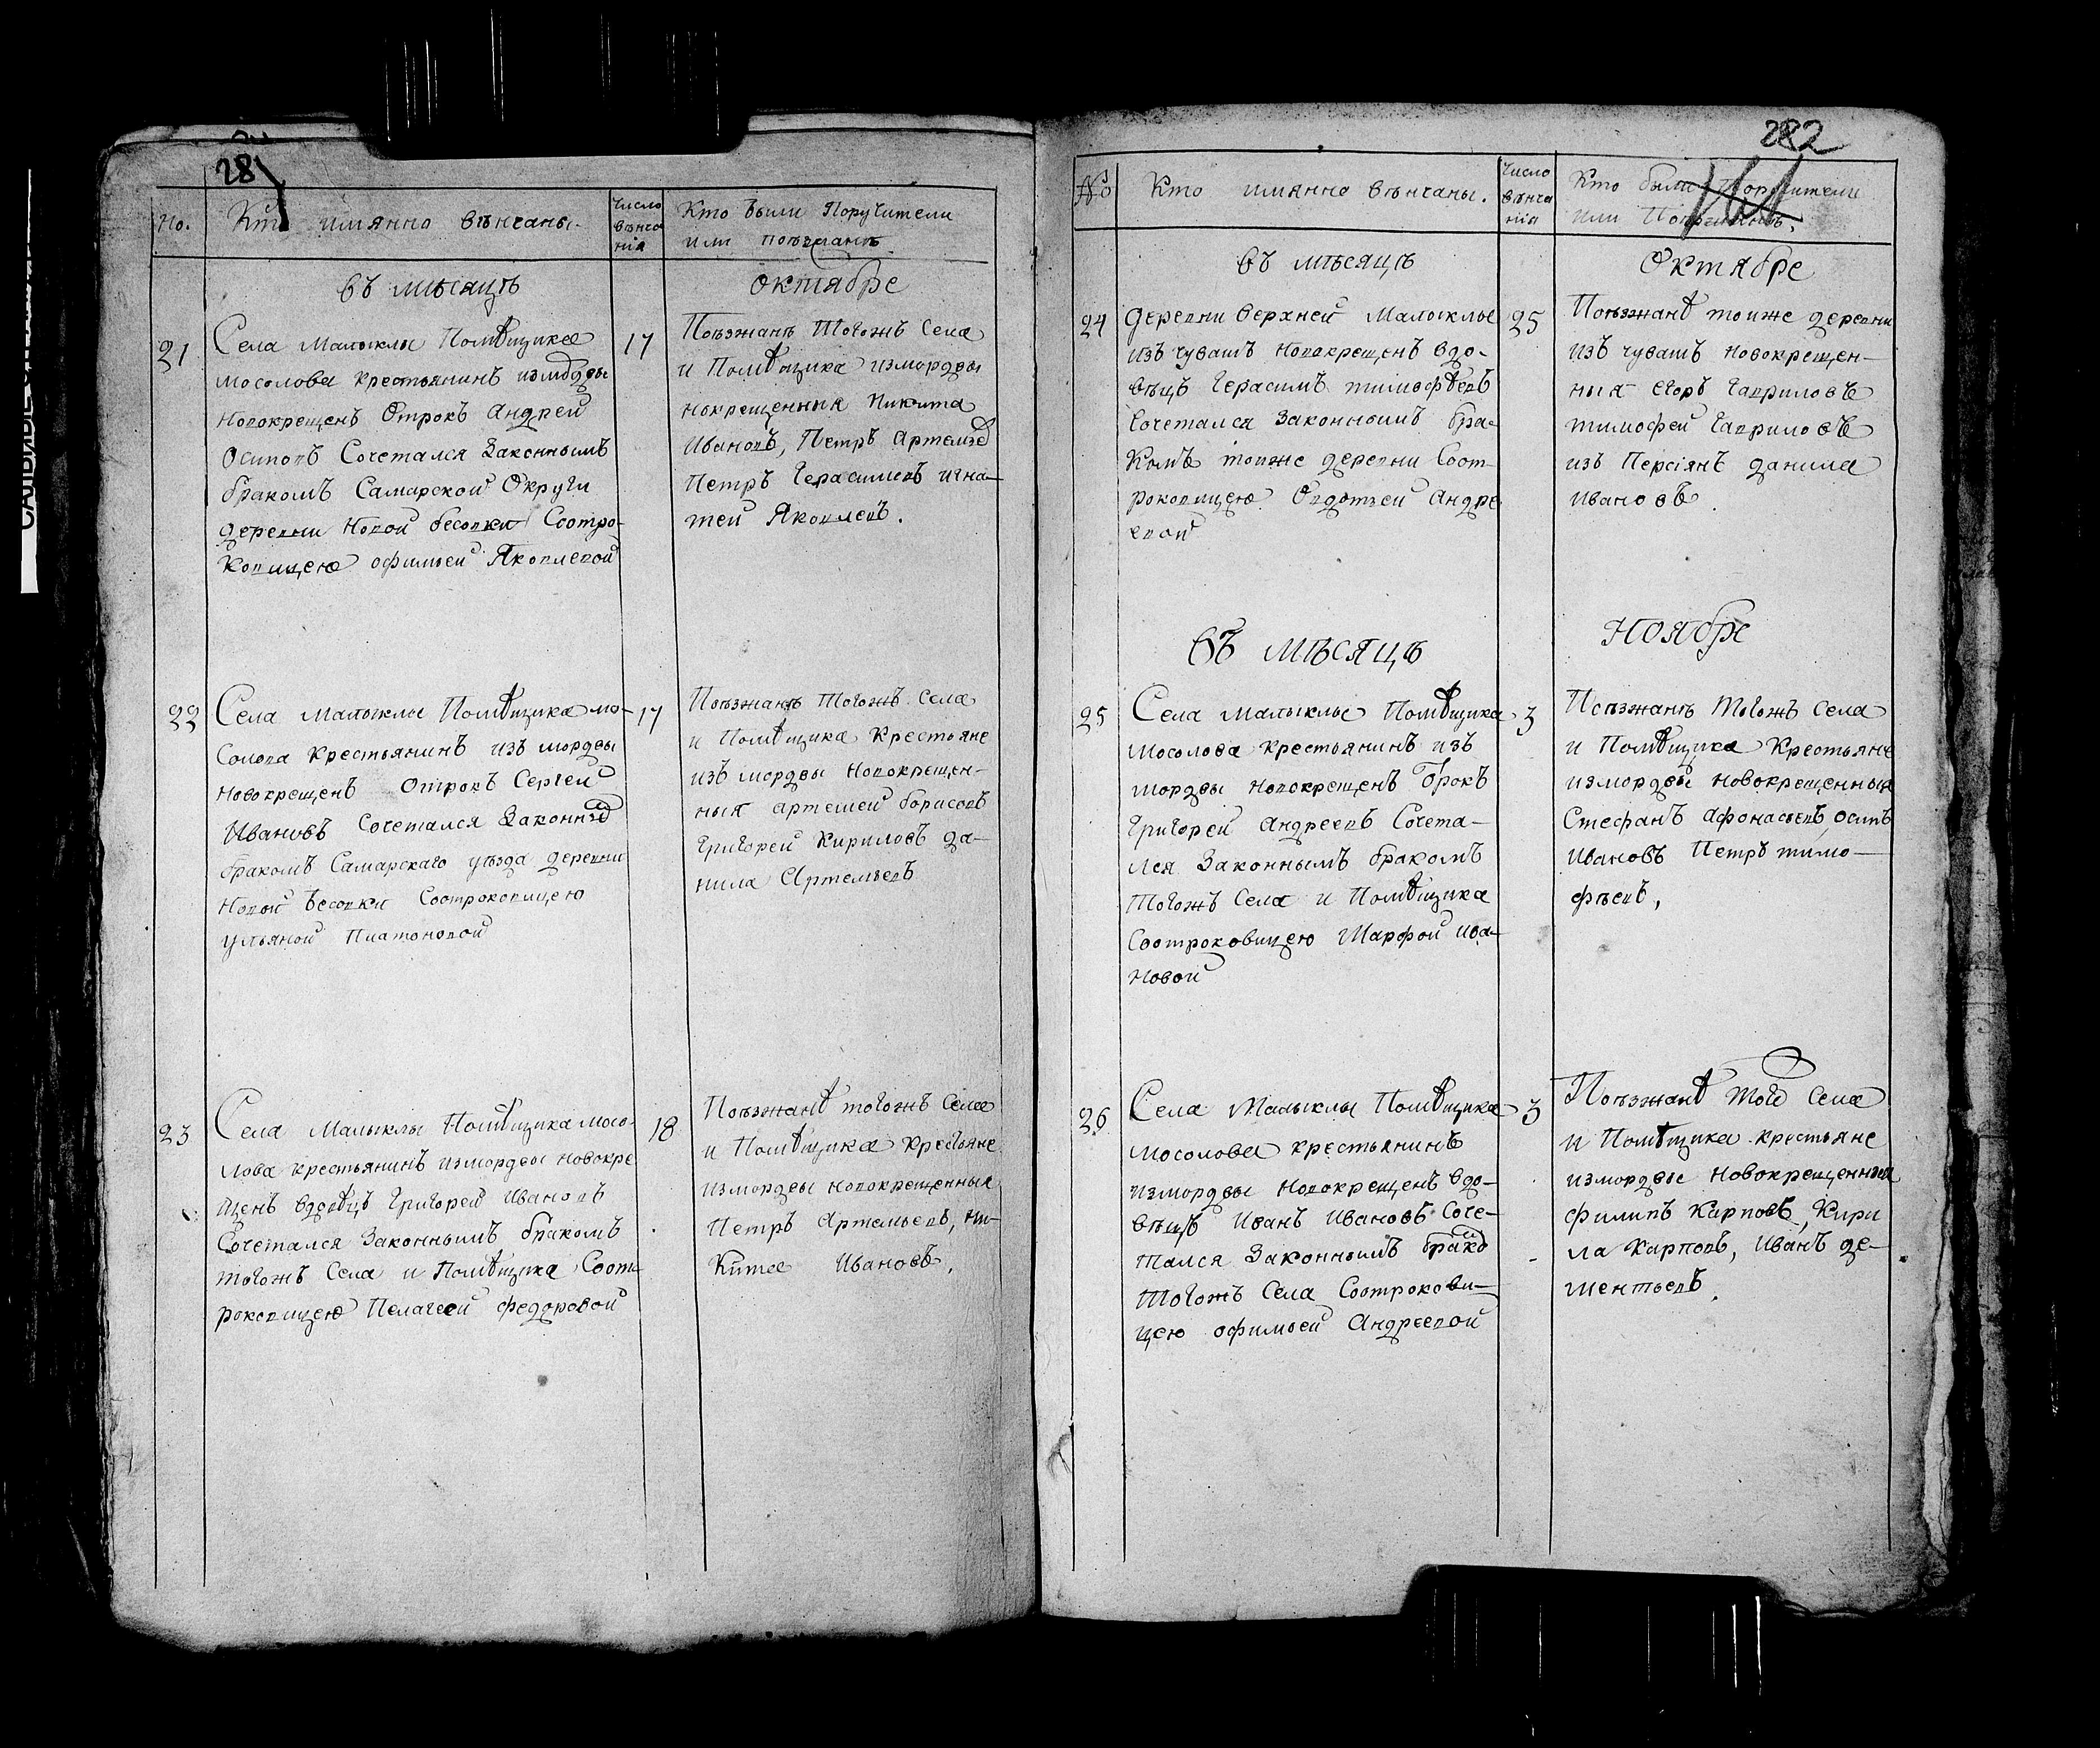 281
No.
Кто имянно вѣнчаны.
число
вѣнча
нія
Кто были Поручители
или поѣзжанѣ
въ мѣсяцѣ
октябре
21
Села Малыклы Помѣщика
мосолова крестьянинъ измордвы
новокрещенъ Отрокъ Андрей
Осиповъ Сочетался Законнымъ
бракомъ Самарской Округи
деревни Новой бесовки Соотро-
ковицею офимьей Яковлевой
17
Поѣзжанѣ Тогожъ Села
и Помѣщика измордвы
нокрещенныя Никита
Ивановъ, Петръ Артемьевъ
Петръ Герасимовъ игна-
тей Яковлевъ.
22
Села Малыклы Помѣщика мо-
солова крестьянинъ изъ мордвы
новокрещенъ Отрокъ Сергей
Ивановъ Сочетался Законнымъ
бракомъ Самарскаго уѣзда деревни
Новой бесовки Соотроковицею
ульяной Платоновой
17
Поѣзжанѣ Тогожъ Села
и Помѣщика Крестьяне
изъ мордвы Новокрещен-
ныя артемей борисовъ
Григорей Кириловъ да-
нила Артемьевъ
23
Села Малыклы Помѣщика мосо-
лова крестьянинъ измордвы новокре
щенъ вдовѣцъ Григорей Ивановъ
Сочетался Законнымъ бракомъ
тогожъ Села и Помѣщика Соот-
роковицею Пелагеей федоровой
18
Поѣзжанѣ тогожъ Села
и Помѣщика крестьяне
измордвы новокрещенныя
Петръ Артемьевъ, Ни-
Кита Ивановъ.
282
№
Кто имянно вѣнчаны.
число
вѣнча
нія
Кто были Поручители
или Поѣзжанѣ.
въ мѣсяцѣ
Октябре
24
деревни верхней Малыклы
изъ чувашъ новокрещенъ вдо-
вѣцъ Герасимъ тимофѣевъ
Сочетался Законнымъ бра-
Комъ тоиже деревни Соот-
роковицею Овдотьей Андре
евой
25
Поѣзжанѣ тоиже деревни
изъ чувашъ новокрещен-
ныя егоръ Гавриловъ
тимофей Гавриловъ
изъ Персіянъ данила
Ивановъ.
Въ мѣсяцѣ
Ноябре
25
Села Малыклы Помѣщика
мосолова крестьянинъ изъ
мордвы новокрещенъ Отрокъ
Григорей Андреевъ Сочета-
лся Законнымъ бракомъ
Тогожъ Села и Помѣщика
Соотроковицею Марфой ива-
новой
3
Поѣзжанѣ Тогожъ Села
и Помѣщика Крестьяне
измордвы новокрещенныя
Стефанъ Афонасьевъ осипъ
Ивановъ Петръ тимо-
фѣевъ,
26
Села Малыклы Помѣщика
мосолова крестьянинъ
измордвы новокрещенъ вдо-
вѣцъ Иванъ Ивановъ Соче-
тался Законнымъ бракомъ
тогожъ Села Соотрокови-
цею офимьей Андреевой
3
Поѣзжанѣ Того Села
и Помѣщика крестьяне
измордвы новокрещенныя
филипъ Карповъ, Кири
ла Карповъ, Иванъ де-
ментьевъ.